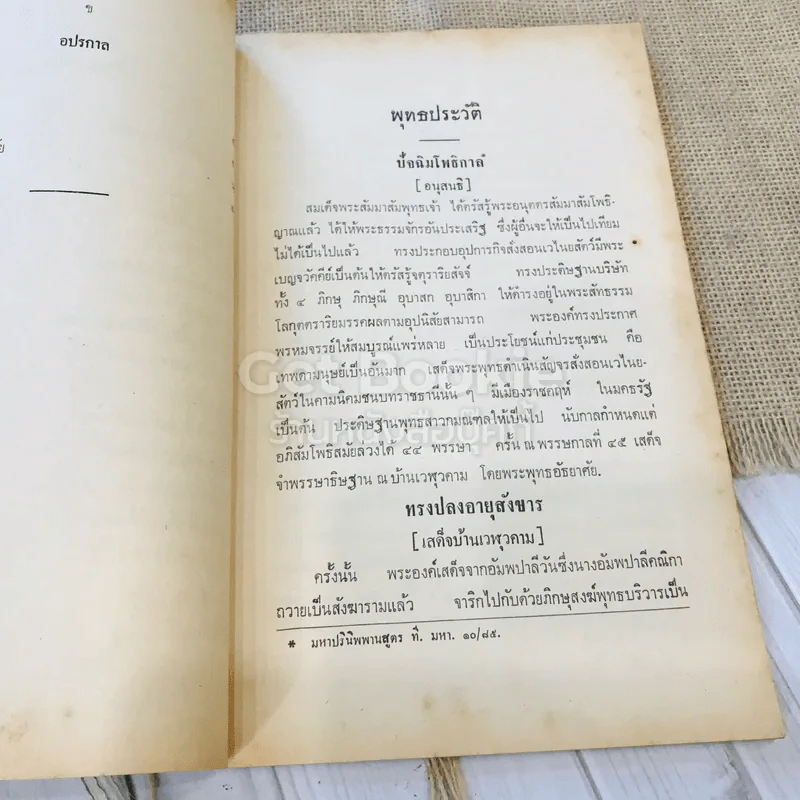 ข
อปรกาล
พุทธประวัติ
ปัจฉิมโพธิกาล
[ อนุสนธิ ]
สมเด็จพระสัมมาสัมพุทธเจ้า ได้ตรัสรู้พระอนุตตรสัมมาสัมโพธิ-
ญาณแล้ว ได้ให้พระธรรมจักรอันประเสริฐ ซึ่งผู้อื่นจะให้เป็นไปเทียม
ไม่ได้เป็นไปแล้ว ทรงประกอบอุปการกิจสั่งสอนเวไนยสัตว์มีพระ
เบญจวัคคีย์เป็นต้นให้ตรัสรู้จตุราริยสัจจ์ ทรงประดิษฐานบริษัท
ทั้ง ๔ ภิกษุ ภิกษุณี อุบาสก อุบาสิกา ให้ดำรงอยู่ในพระสัทธรรม
โลกุตตราริยมรรคผลตามอุปนิสัยสามารถ พระองค์ทรงประกาศ
พรหมจรรย์ให้สมบูรณ์แพร่หลาย เป็นประโยชน์แก่ประชุมชน คือ
เทพดามนุษย์เป็นอันมาก เสด็จพระพุทธดำเนินสัญจรสั่งสอนเวไนย-
สัตว์ในคามนิคมชนบทราชธานีนั้น ๆ มีเมืองราชคฤห์ ในมคธรัฐ
เป็นต้น ประดิษฐานพุทธสาวกมณฑลให้เป็นไป นับกาลกำหนดแต่
อภิสัมโพธิสมัยล่วงได้ ๔๔ พรรษา ครั้น ณ พรรษากาลที่ ๔๕ เสด็จ
จำพรรษาธิษฐาน ณ บ้านเวฬุวคาม โดยพระพุทธอัธยาศัย.
ทรงปลงอายุสังขาร
[ เสด็จบ้านเวฬุวคาม ]
ครั้งนั้น พระองค์เสด็จจากอัมพปาลีวันซึ่งนางอัมพปาลีคณิกา
ถวายเป็นสังฆารามแล้ว จาริกไปกับด้วยภิกษุสงฆ์พุทธบริวารเป็น
* มหาปรินิพพานสูตร ที. มหา. ๑๐/๘๕.